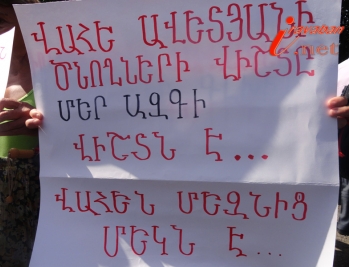 ՎԱՀԵ ԱՎԵՏՅԱՆԻ
ԾՆՈՂՆԵՐԻ ՎԻՇՏԸ
ՄԵՐ ԱԶԳԻ
ՎԻՇՏՆ Է...
ՎԱՀԵՆ ՄԵԶՆԻՑ
ՄԵԿՆ Է...
.net